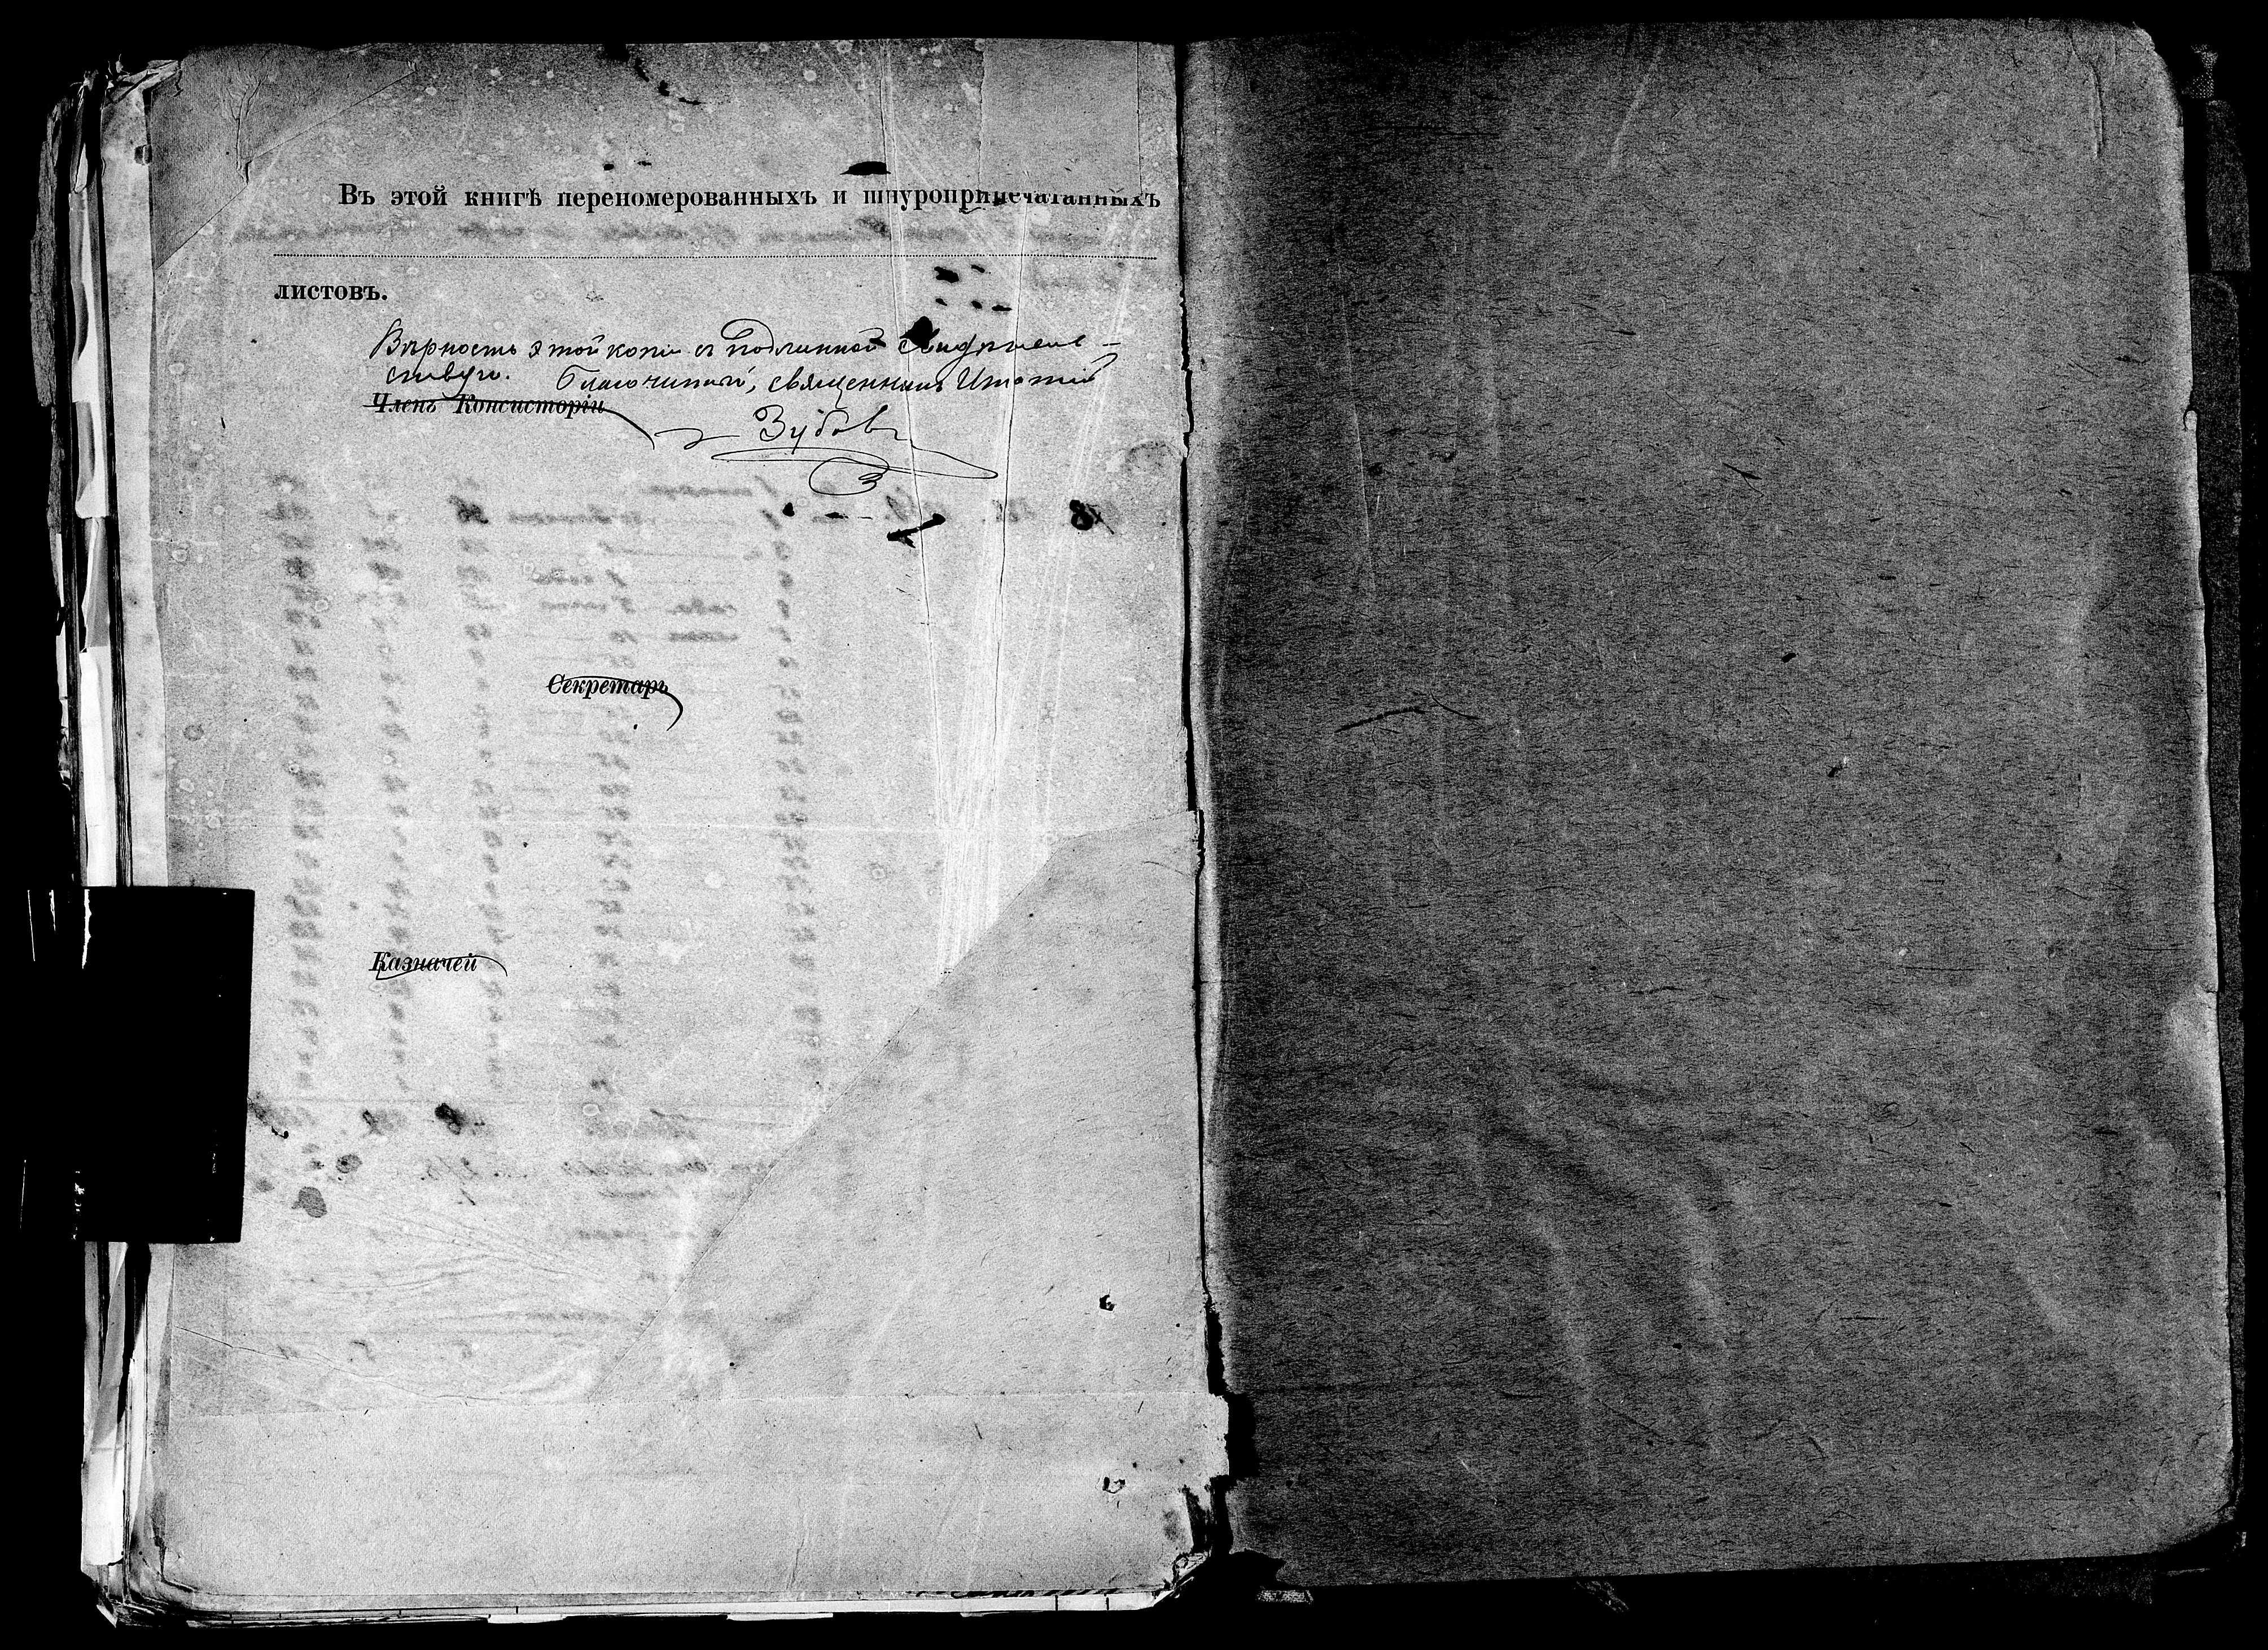 Въ этой книгѣ переномерованныхъ и шнуроприпечатанныхъ
листовъ.
Вѣрность этой копіи съ подлинной свидѣтель-
ствую. Благочинный, священникъ
Членъ Консисторіи
Зубовъ
Секретарь
Казначей